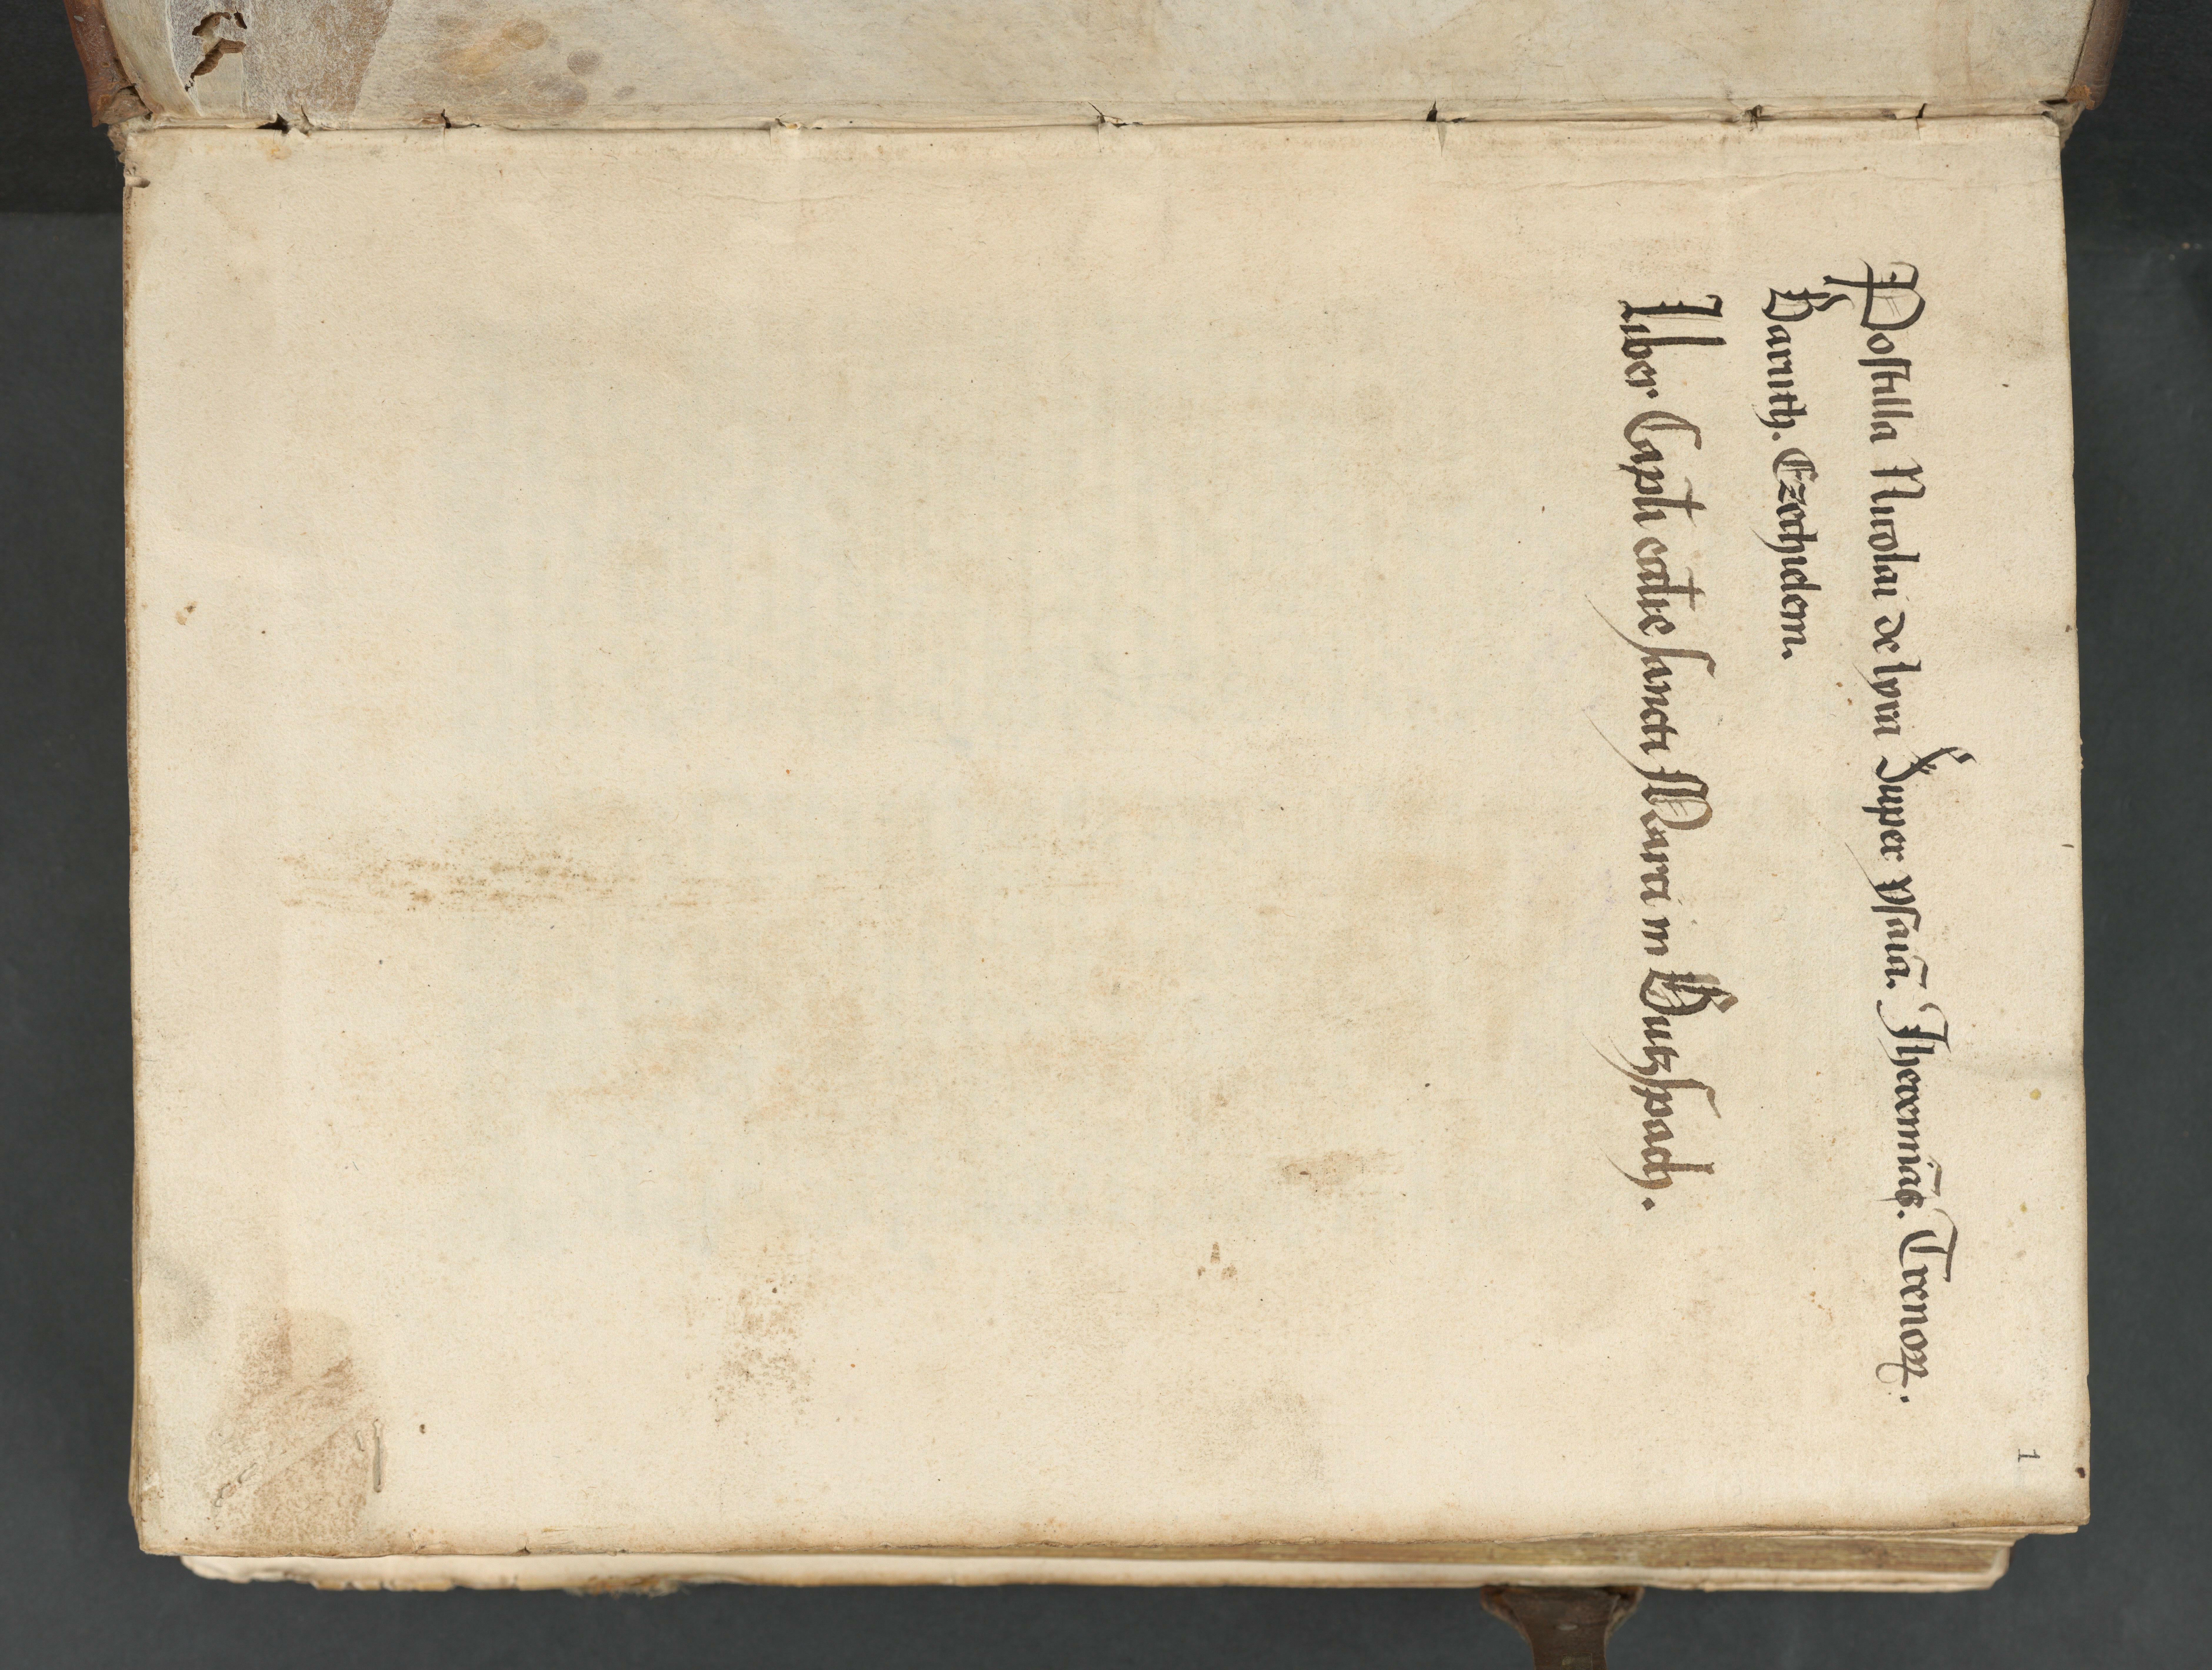 1
Postilla Nicolai de lyra Super ysaiā. Iheremiā. Trenoꝝ.
Baruth. Ezechielem.
Liber Capli eccīe sancti Marci in Butzspach.